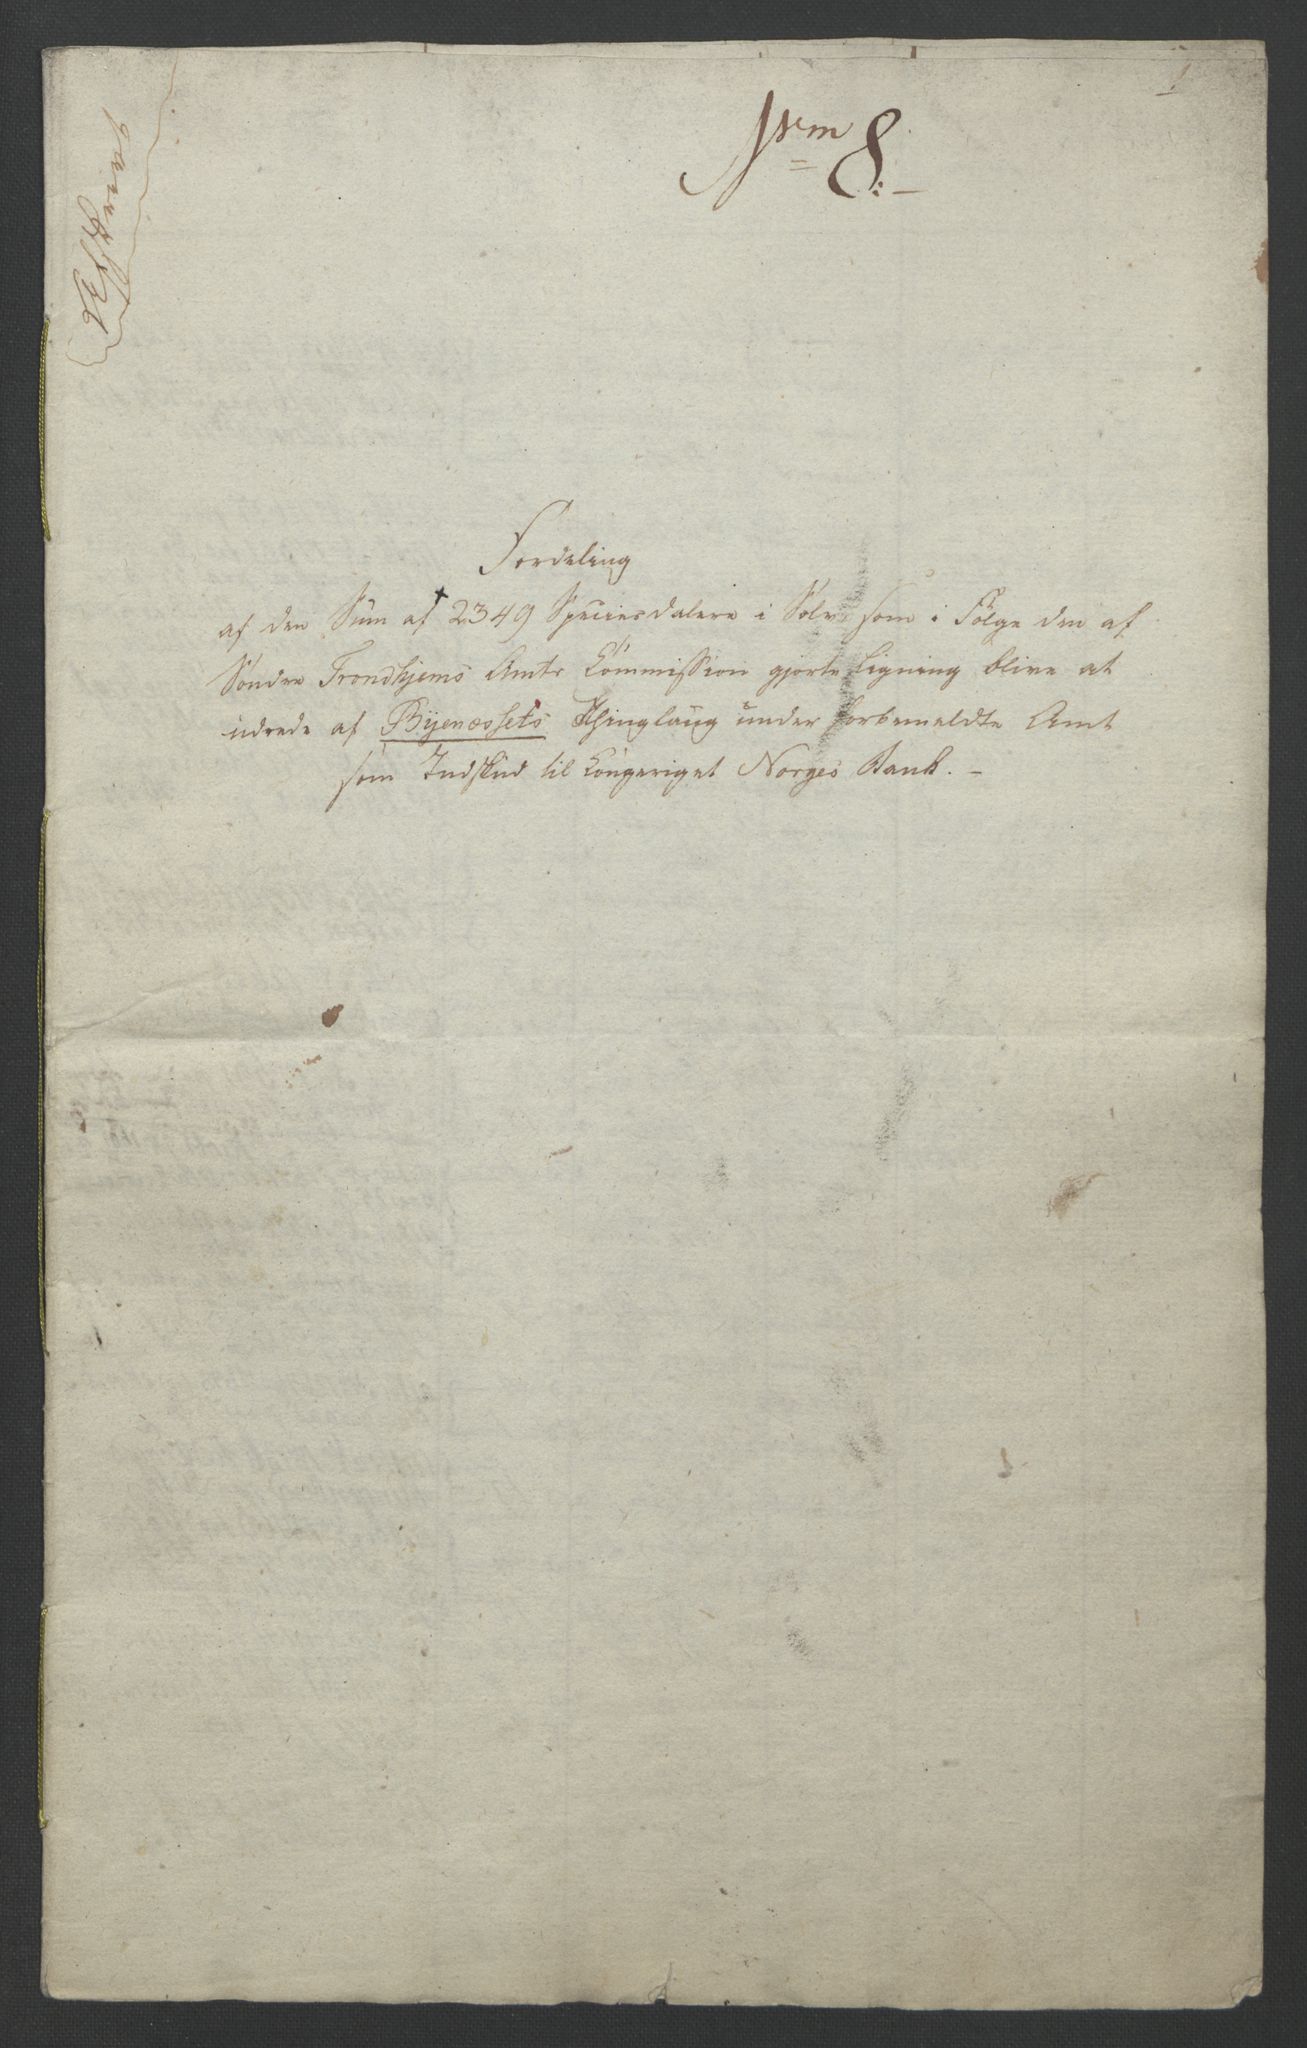 1
8.
Fordeling
af den Sum af 2349 Speciesdalere i Sølv, som i Følge den af
Søndre Trondhjems Amts Commission gjorte Ligning blive at
udrede af Byenæssets Thinglaug under forbemeldte Amt
som Indskud til Kongeriget Norges Bank. –